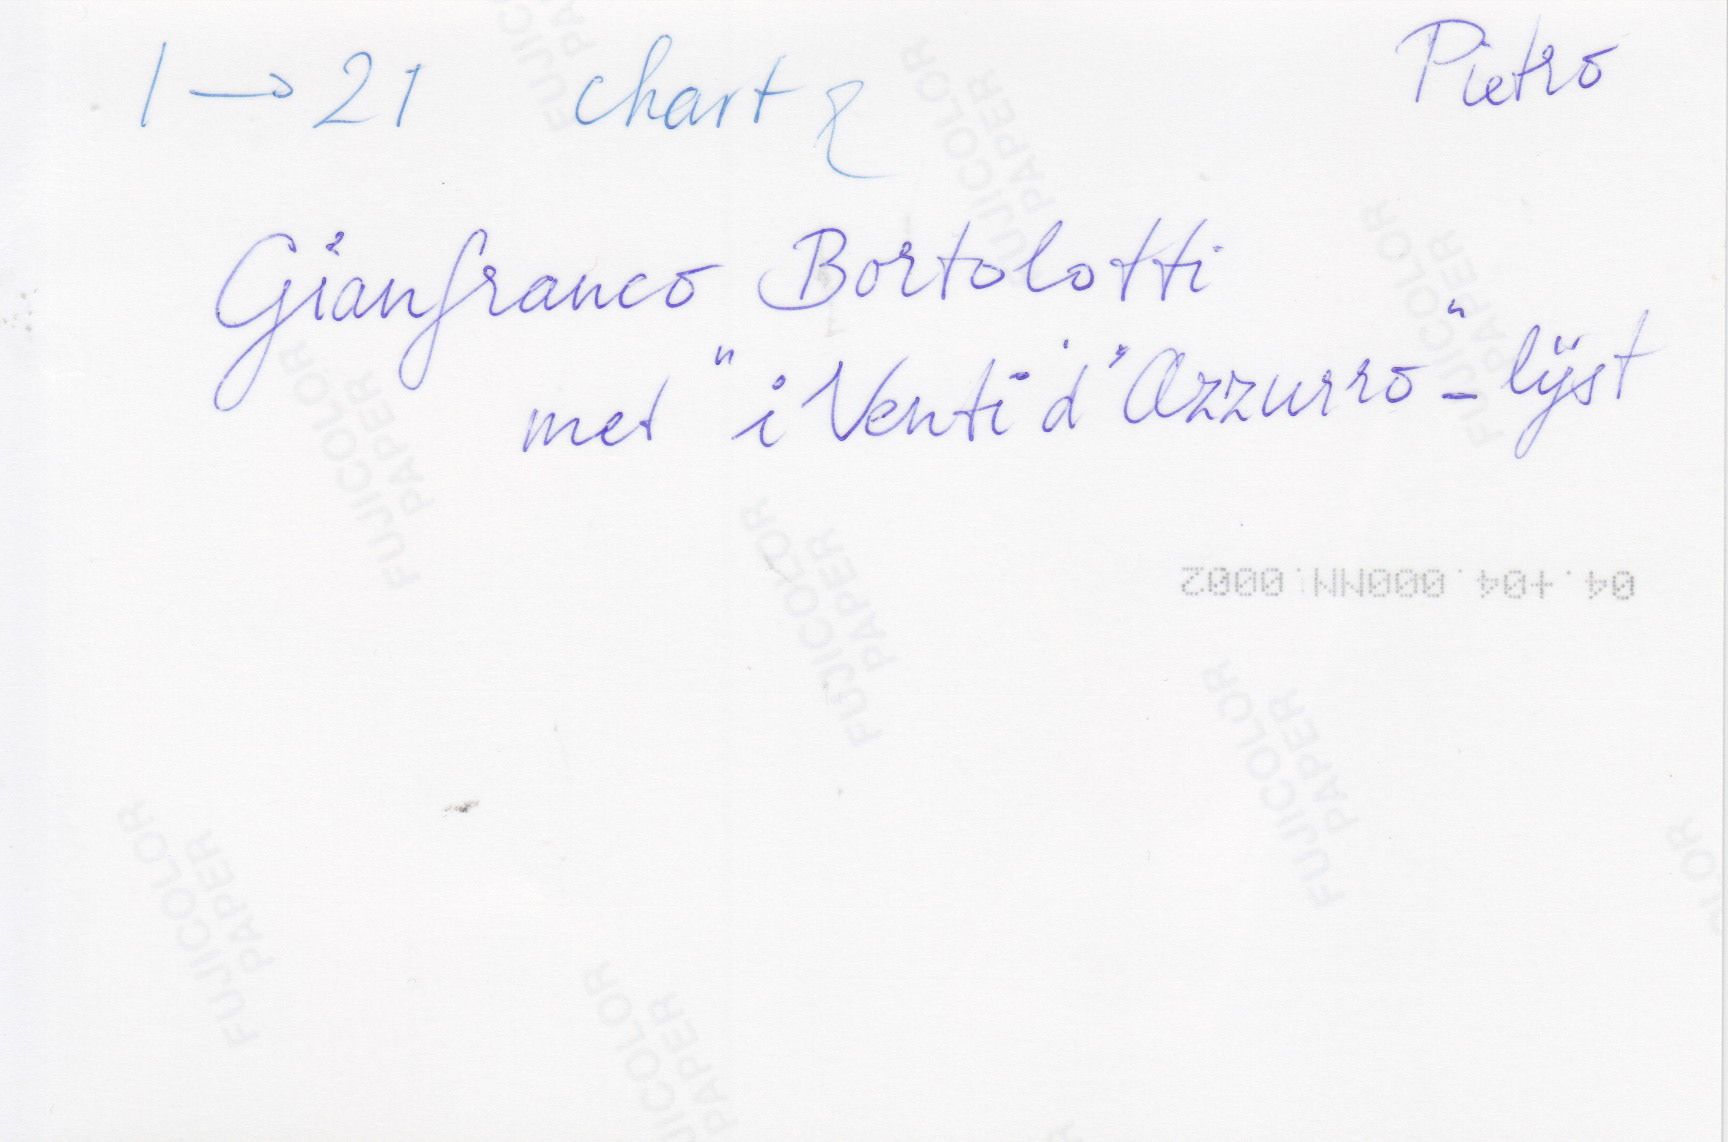 1 → 21 chart
Pietro
Gianfranco Bortolotti
met "i Venti d'Azzurro"-lijst
04.+04.000NN.0002
FUJICOLOR
PAPER
FUJICOLOR
PAPER
FUJICOLOR
PAPER
FUJICOLOR
PAPER
FUJICOLOR
PAPER
FUJICOLOR
PAPER
FUJICOLOR
PAPER
FUJICOLOR
PAPER